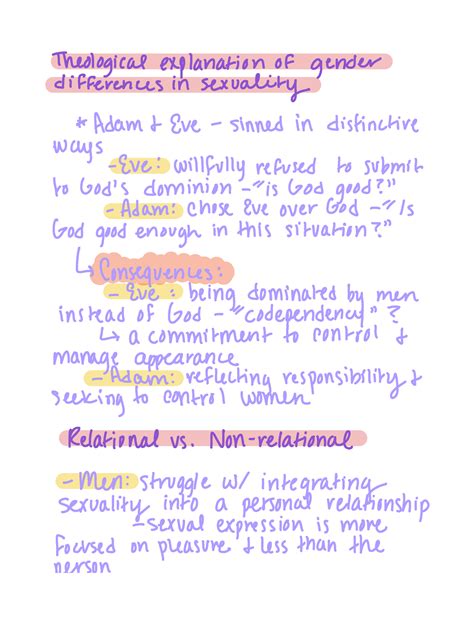 Theological explanation of gender
differences in sexuality
* Adam & Eve - sinned in distinctive
ways
- Eve: willfully refused to submit
to God's dominion - "is God good?"
- Adam: chose Eve over God - "Is
God good enough in this situation?"
↳ Consequences:
- Eve: being dominated by men
instead of God - "codependency"?
↳ a commitment to control &
manage appearance
- Adam: reflecting responsibility &
seeking to control women
Relational vs. Non-relational
- Men: struggle w/ integrating
sexuality into a personal relationship
- sexual expression is more
focused on pleasure & less than the
person